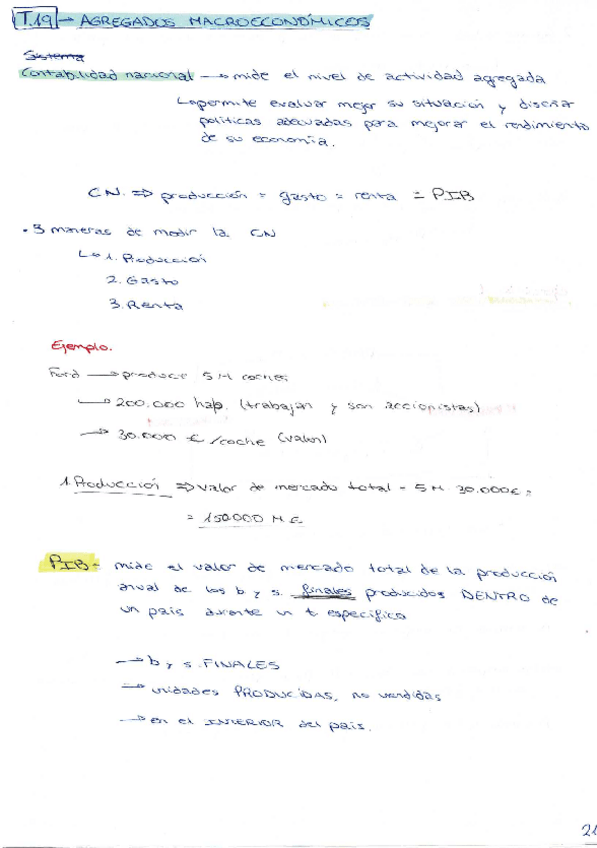 T.19 → AGREGADOS MACROECONÓMICOS
Sistema
Contabilidad nacional → mide el nivel de actividad agregada
↳ permite evaluar mejor su situación y diseñar
políticas adecuadas para mejorar el rendimiento
de su economía.
CN. ⇒ producción = gasto = renta = PIB
· 3 maneras de medir la CN
↳ 1. Producción
2. Gasto
3. Renta
Ejemplo.
Ford → produce 5 M coches
→ 200.000 hab. (trabajan y son accionistas)
→ 30.000 €/coche (valor)
1. Producción ⇒ valor de mercado total = 5 M. 30.000€ =
= 150000 M €
PIB - mide el valor de mercado total de la producción
anual de los b y s. finales producidos DENTRO de
un país durante un t específico
→ b y s. FINALES
→ unidades PRODUCIDAS, no vendidas
→ en el INTERIOR del país.
21